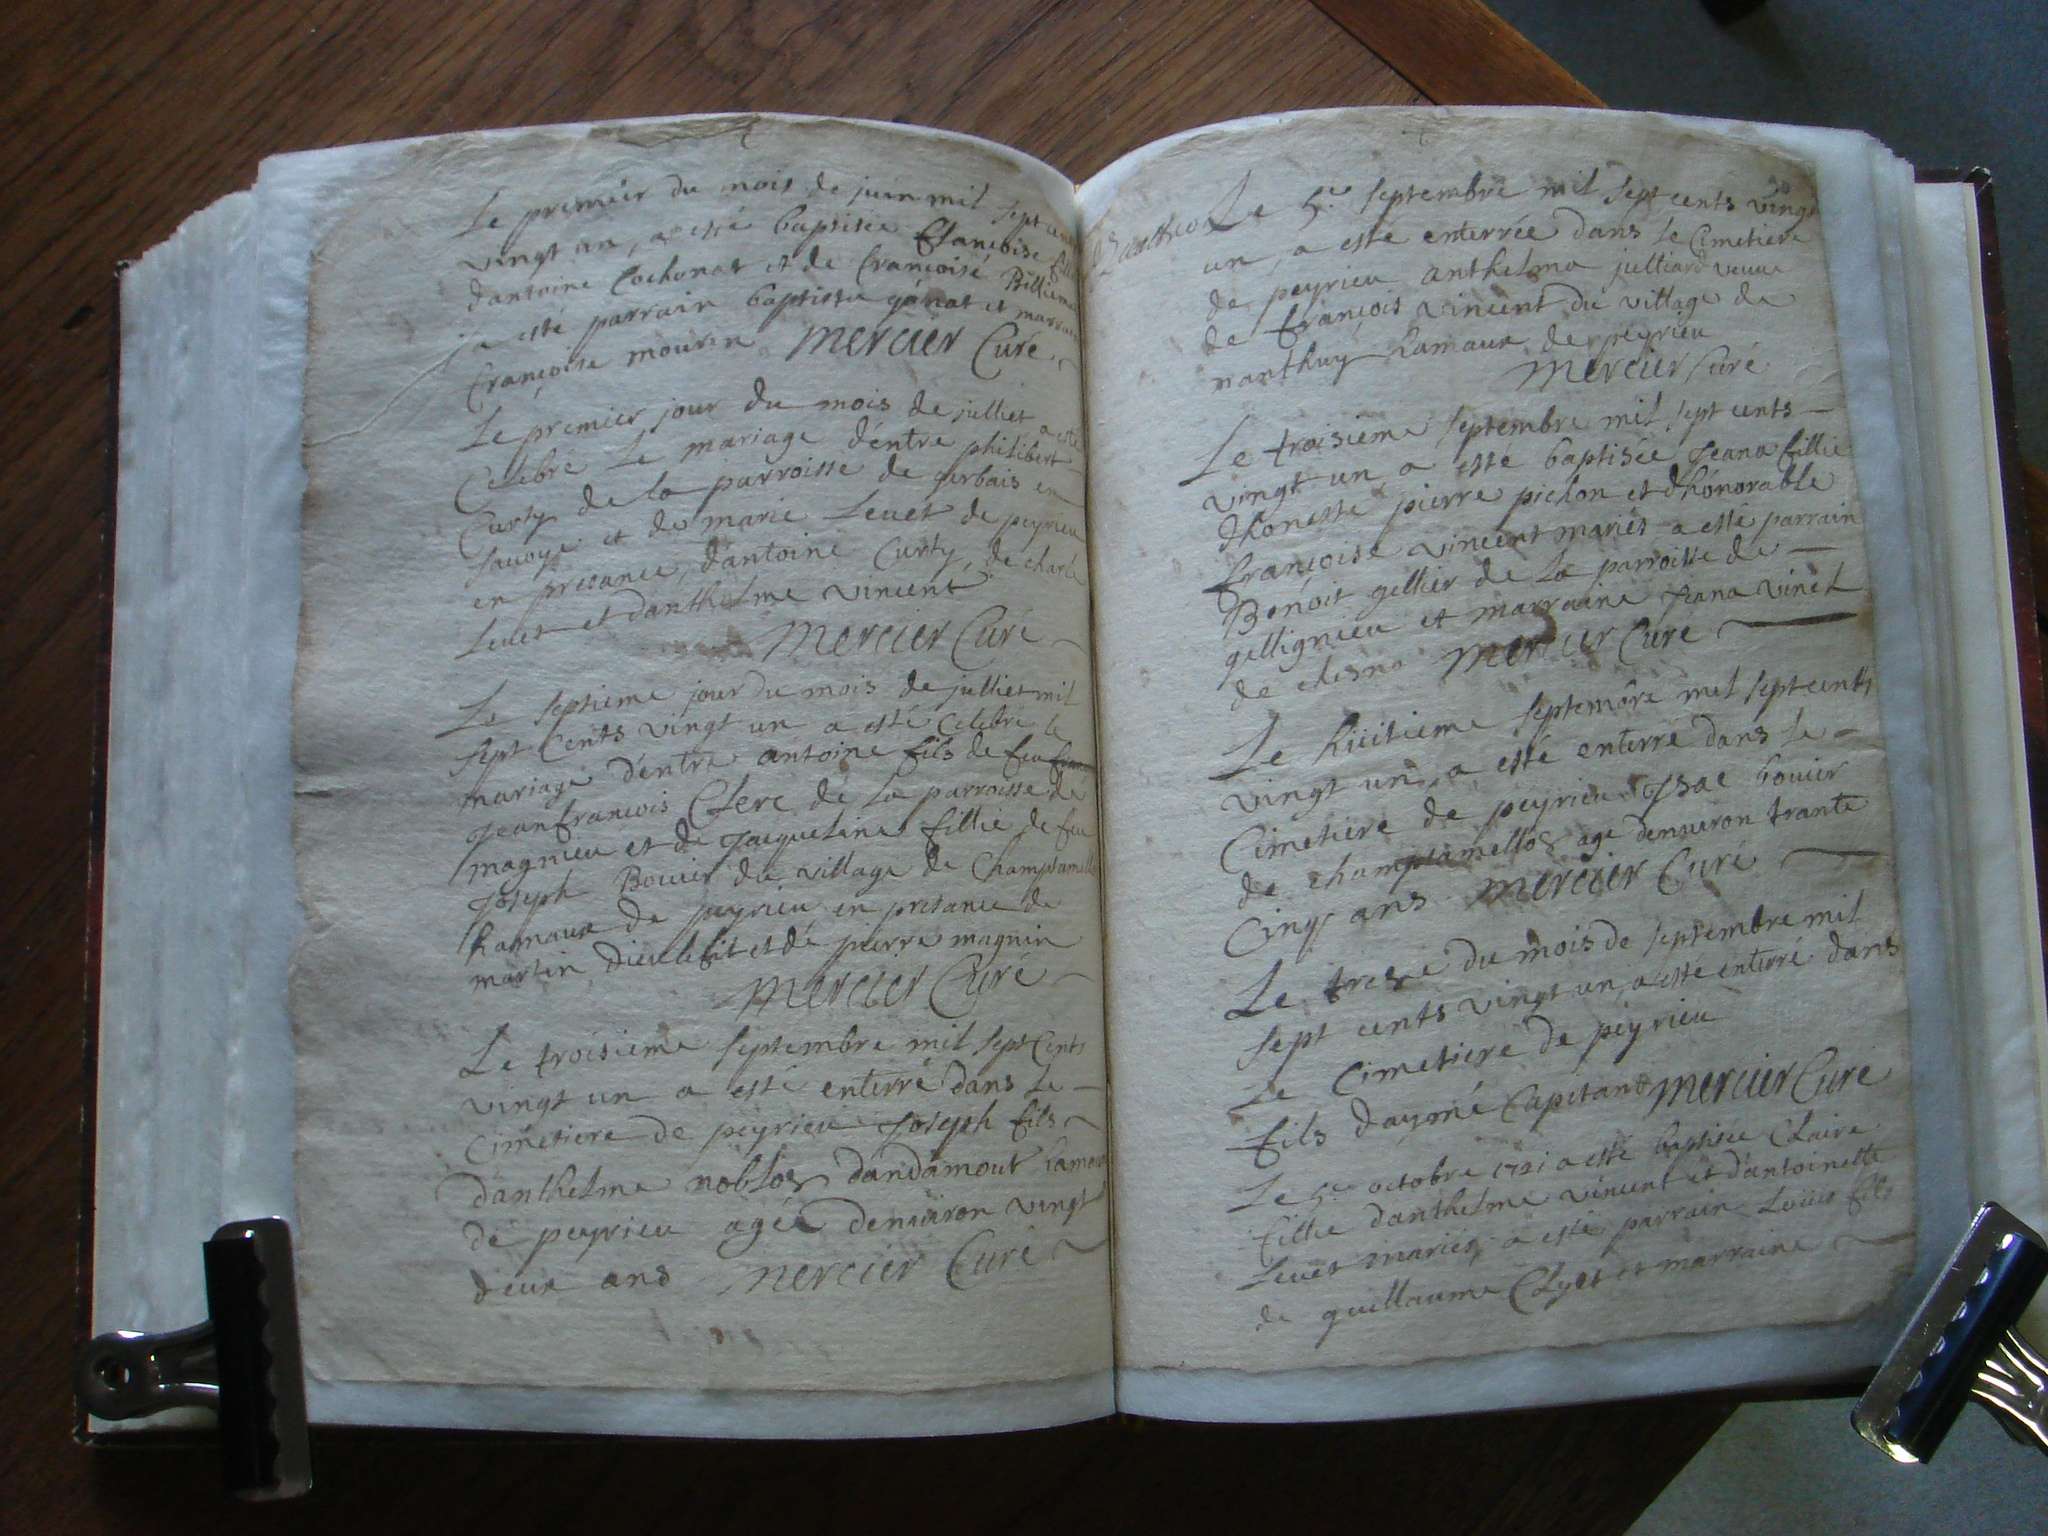 Le premier du mois de juin mil sept cents
vingt un, a esté baptisée françoise fillie
dantoine Cochonat et de françoise Billiemas
ja esté parrain baptiste gónat et marraine
françoise mourin Mercier Curé
Le premier jour du mois de julliet a esté
Celebré Le mariage d'entre philibert
Curty de La parroisse de gerbais en
savoye et de marie Levet de peyrieu
en presance, dantoine Curty, de charle
Levet et danthelme vincent
Mercier Curé
Le septieme jour du mois de julliet mil
sept Cents vingt un a esté Celebré le
mariage d'entre antoine fils de feu
Jeanfrancois Clerc de La parroisse de
magnieu et de Jacqueline fillie de feu
Joseph Bouvier du village de Champtamello
hamaux de peyrieu en presance de
martin Dieulefit et de pierre magnin
Mercier Curé
Le troisieme septembre mil sept Cents
vingt un a esté enterré dans Le
Cimetiere de peyrieu Joseph fils
danthelme noblos dandamout hamaux
de peyrieu agé denviron vingt
deux ans Mercier Curé
Le 5e septembre mil sept cents vingt
un, a esté enterrée dans le Cimetiere
de peyrieu anthelma julliard veuve
de françois vincent du village de
nanthuy hamaux de peyrieu
Mercier Curé
Le troisieme septembre mil sept cents
vingt un, a esté baptisée Jeana fillie
d'honeste pierre pichon et d'hónorable
françoise vincent mariés a esté parrain
Bénoit gellier de La parroisse de
gellignieu et marraine Jeana vinet
de chesno Mercier Curé
Le huitieme septembre mil sept cents
vingt un, a esté enterré dans Le
Cimetiere de peyrieu Ysac bouvier
de champtamello, agé denviron trante
Cinq ans Mercier Curé
Le treze du mois de septembre mil
sept cents vingt un, a esté enterré dans
Le Cimetiere de peyrieu
fils d'aymé Capitand Mercier Curé
Le 5e octobre 1721 a esté baptisée Claire
fillie danthelme vincent et dantoinette
Levet mariés, a esté parrain Loüis fils
de guillaume Clyet et marraine